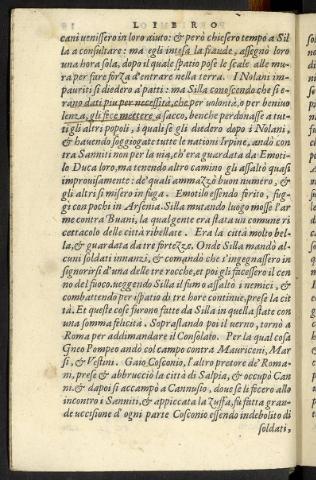 LIBRO
cani venissero in loro aiuto: & però chiesero tempo a Sil
la a consultare: ma egli intesa la fraude, assegnò loro
una hora sola, dopo il quale spatio pose le scale alle mu
ra per fare forza d'entrare nella terra. I Nolani im=
pauriti si diedero a' patti: ma Silla conoscendo che si e=
rano dati piu per necessità, che per volontà, o per beniuo
lenza, gli fece mettere a sacco, benche perdonasse a tut=
ti gli altri popoli, i quali se gli diedero dopo i Nolani,
& havendo soggiogate tutte le nationi Irpine, andò con
tra Sanniti non per la via, ch'era guardata da Emoti=
lo Duca loro, ma tenendo altro camino gli assaltò quasi
improuisamente: de' quali amazzò buon numero, &
gli altri si misero in fuga. Emotilo essendo ferito, fug=
gì con pochi in Arsenia. Silla mutando luogo mosse l'ar
me contra Buani, la qual gente era stata un comune ri
cettacolo delle città ribellate. Era la città molto bel=
la, & guardata da tre fortezze. Onde Silla mandò al=
cuni soldati innanzi, & comandò che s'ingegnassero in
signorirsi d'una delle tre rocche, et poi gli facessero il cen
no del fuoco. veggendo Silla il fumo assaltò i nemici, &
combattendo per ispatio di tre hore continue, prese la cit
tà. Et queste cose furono fatte da Silla in quella state con
una somma felicità. Soprastando poi il verno, tornò a
Roma per addimandare il Consolato. Per la qual cosa
Gneo Pompeo andò col campo contra Mauriceni, Mar
si, & Vestini. Gaio Cosconio, l'altro pretore de' Roma=
ni, prese & abbrucciò la città di Salpia, & occupò Can
ni. & dapoi si accampò a Cannusio, doue se li fecero allo
incontro i Sanniti, & appiccata la zuffa, fù fatta gran=
de uccisione d'ogni parte Cosconio essendo indebolito di
soldati,